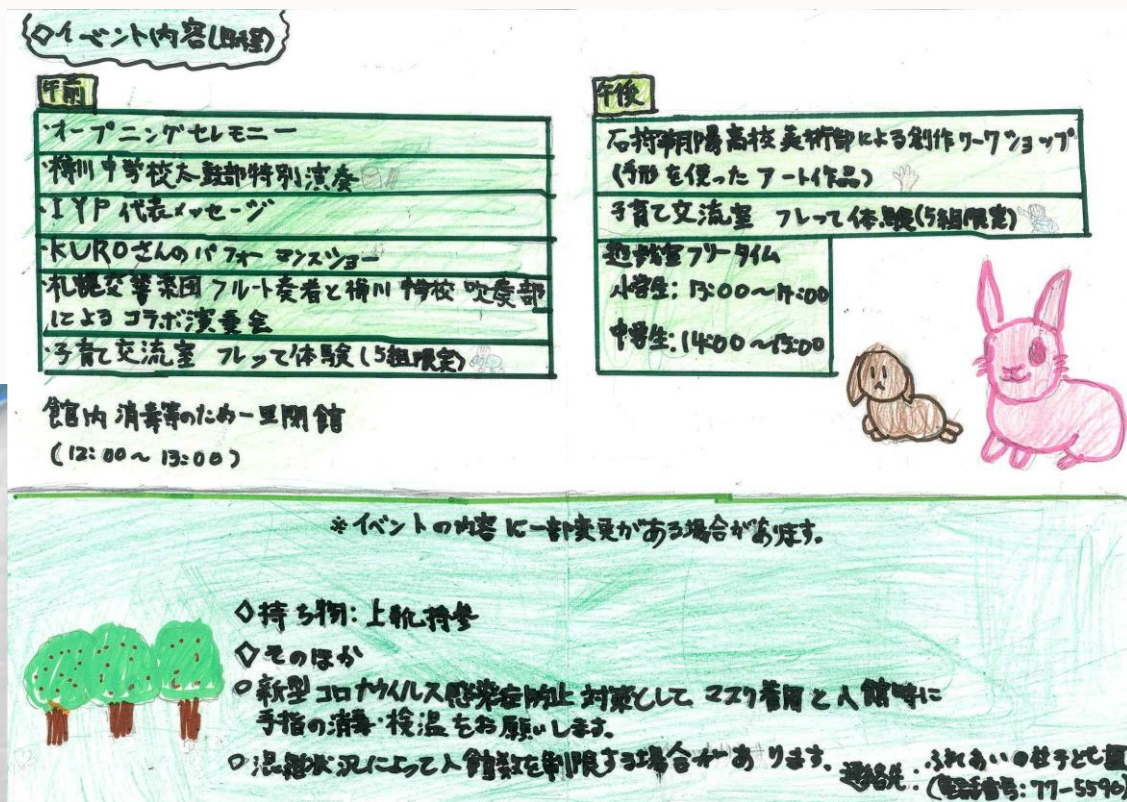 ◇イベント内容(日程)
午前
・オープニングセレモニー
・樽川中学校太鼓部特別演奏
・IYP代表メッセージ
・KUROさんのパフォーマンスショー
・札幌交響楽団フルート奏者と樽川中学校吹奏部
によるコラボ演奏会
・子育て交流室 フレって体験(5組限定)
館内消毒等のため一旦閉館
(12:00~13:00)
午後
石狩翔陽高校美術部による創作ワークショップ
(手形を使ったアート作品)
子育て交流室 フレって体験(5組限定)
遊戯室フリータイム
小学生:13:00~14:00
中学生:14:00~15:00
※イベントの内容に一部変更がある場合があります。
◇持ち物:上靴持参
◇そのほか
○新型コロナウイルス感染症防止対策としてマスク着用と入館時に
手指の消毒・検温をお願いします。
○混雑状況によって入館数を制限する場合があります。
連絡先:ふれあいの杜子ども館
(電話番号:77-5590)